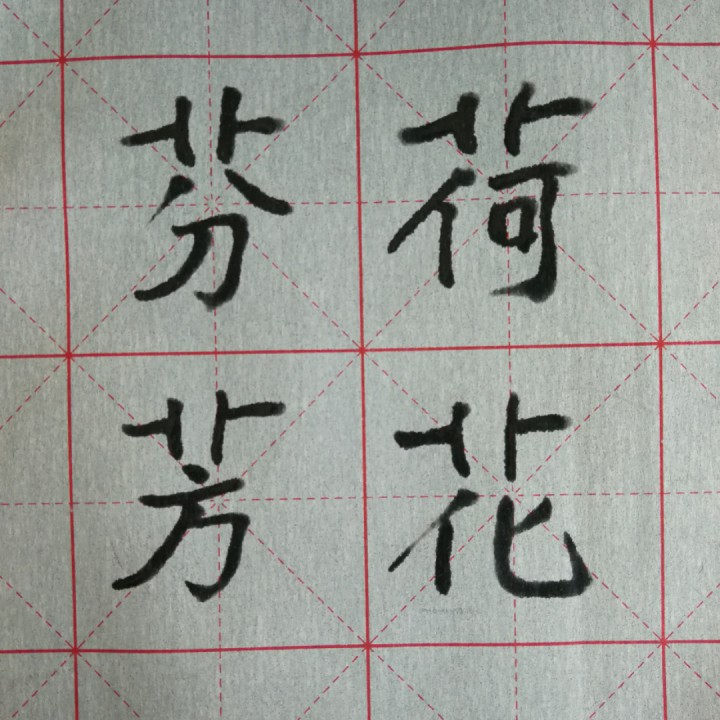 荷花
芬芳